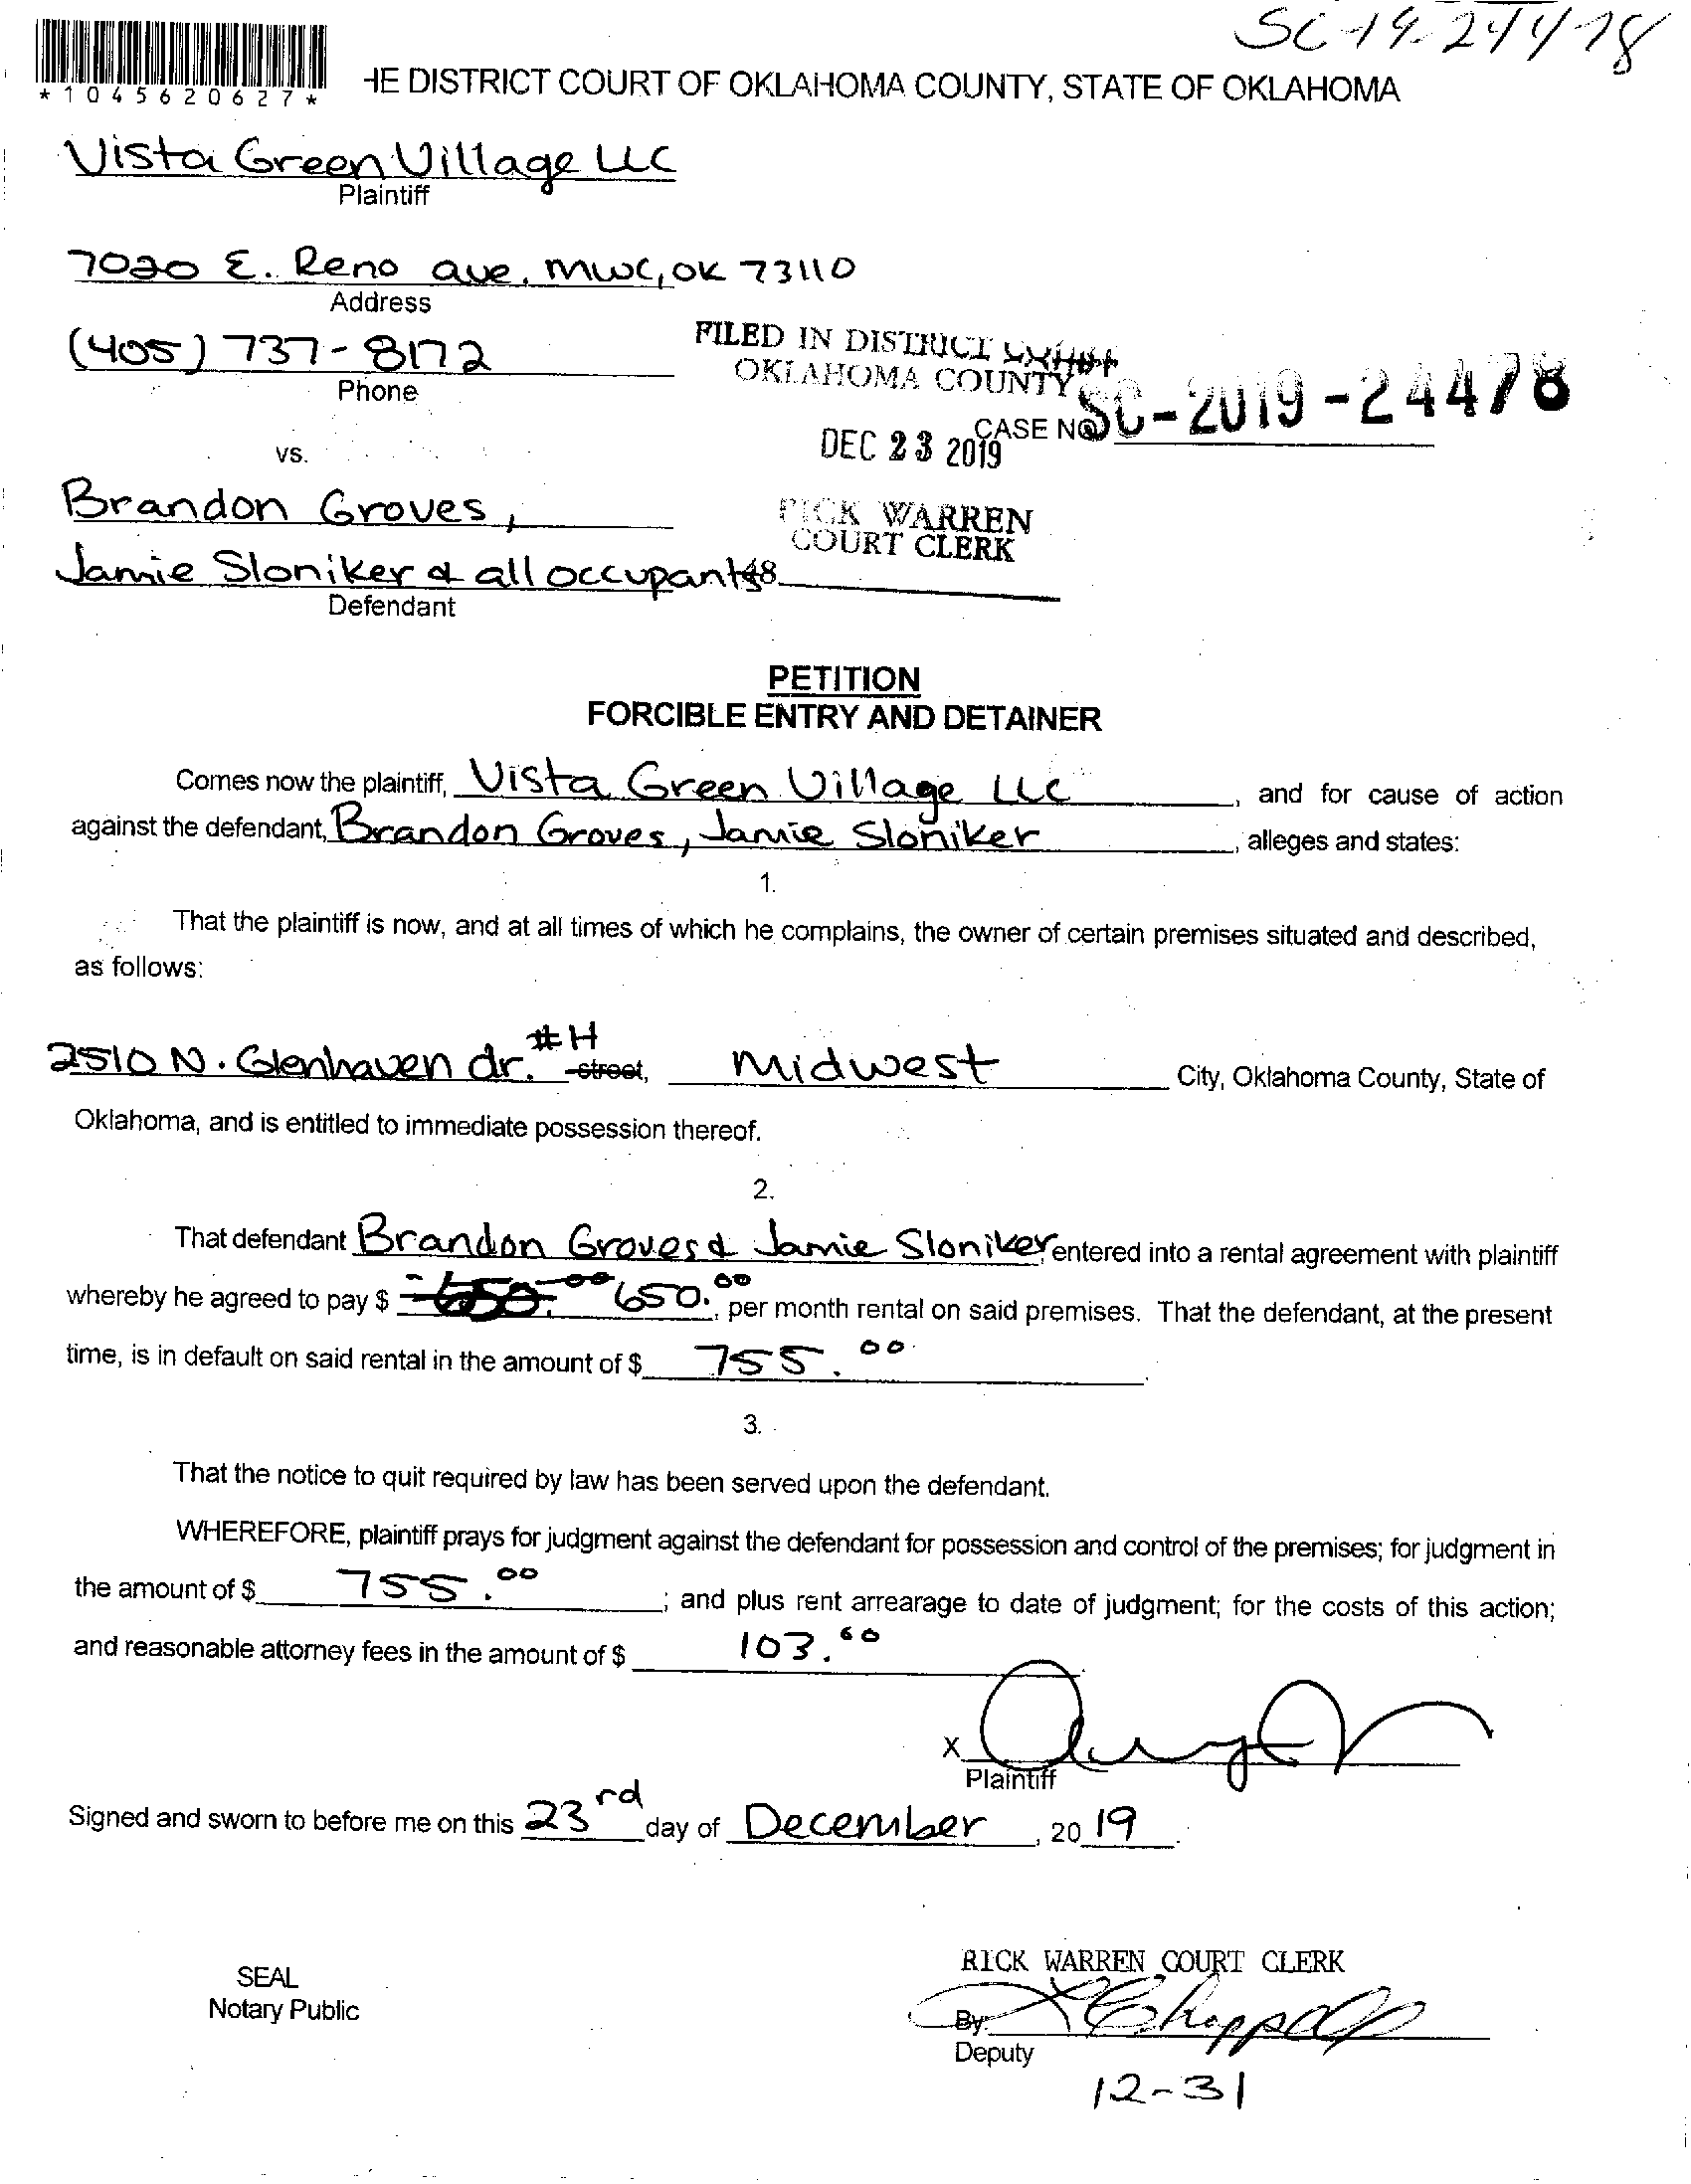 SC-19-24478
*1045620627*
HE DISTRICT COURT OF OKLAHOMA COUNTY, STATE OF OKLAHOMA
Vista Green Village LLC
Plaintiff
7020 E. Reno ave. MWC, OK 73110
Address
(405) 737-8172
Phone
FILED IN DISTRICT COURT
OKLAHOMA COUNTY
CASE NO SC-2019-24478
DEC 23 2019
vs.
Brandon Groves,
RICK WARREN
COURT CLERK
Jamie Sloniker & all occupants
48
Defendant
PETITION
FORCIBLE ENTRY AND DETAINER
Comes now the plaintiff, Vista Green Village LLC, and for cause of action
against the defendant, Brandon Groves, Jamie Sloniker, alleges and states:
1.
That the plaintiff is now, and at all times of which he complains, the owner of certain premises situated and described,
as follows:
2510 N. Glenhaven dr. #H street, Midwest City, Oklahoma County, State of
Oklahoma, and is entitled to immediate possession thereof.
2.
That defendant Brandon Groves & Jamie Sloniker, entered into a rental agreement with plaintiff
whereby he agreed to pay $ 650.00 650.00, per month rental on said premises. That the defendant, at the present
time, is in default on said rental in the amount of $ 755.00.
3.
That the notice to quit required by law has been served upon the defendant.
WHEREFORE, plaintiff prays for judgment against the defendant for possession and control of the premises; for judgment in
the amount of $ 755.00; and plus rent arrearage to date of judgment; for the costs of this action;
and reasonable attorney fees in the amount of $ 103.60
X
Plaintiff
Signed and sworn to before me on this 23rd day of December, 2019.
RICK WARREN COURT CLERK
SEAL
Notary Public
By
Deputy
12-31